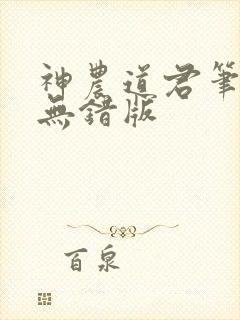 神農道君筆
無錯版
百泉